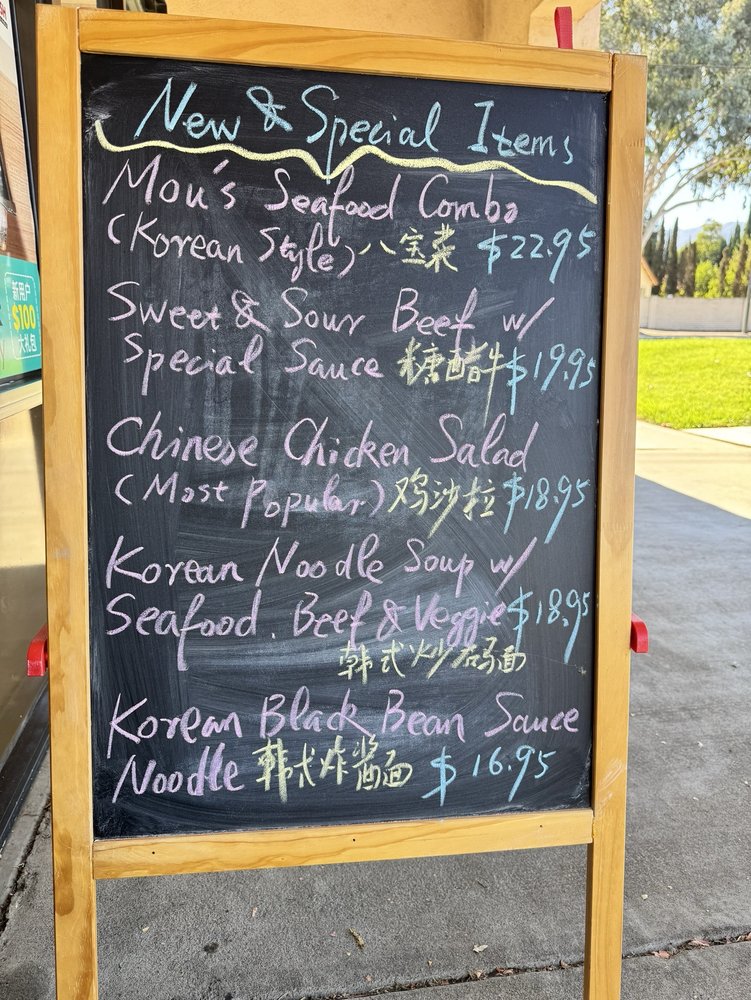 New & Special Items
Mou's Seafood Combo
(Korean Style) 八宝菜 $22.95
Sweet & Sour Beef w/
Special Sauce 糖醋牛 $19.95
Chinese Chicken Salad
(Most Popular) 鸡沙拉 $18.95
Korean Noodle Soup w/
Seafood. Beef & Veggie $18.95
韩式炒码面
Korean Black Bean Sauce
Noodle 韩式炸酱面 $16.95
新用户
$100
大礼包